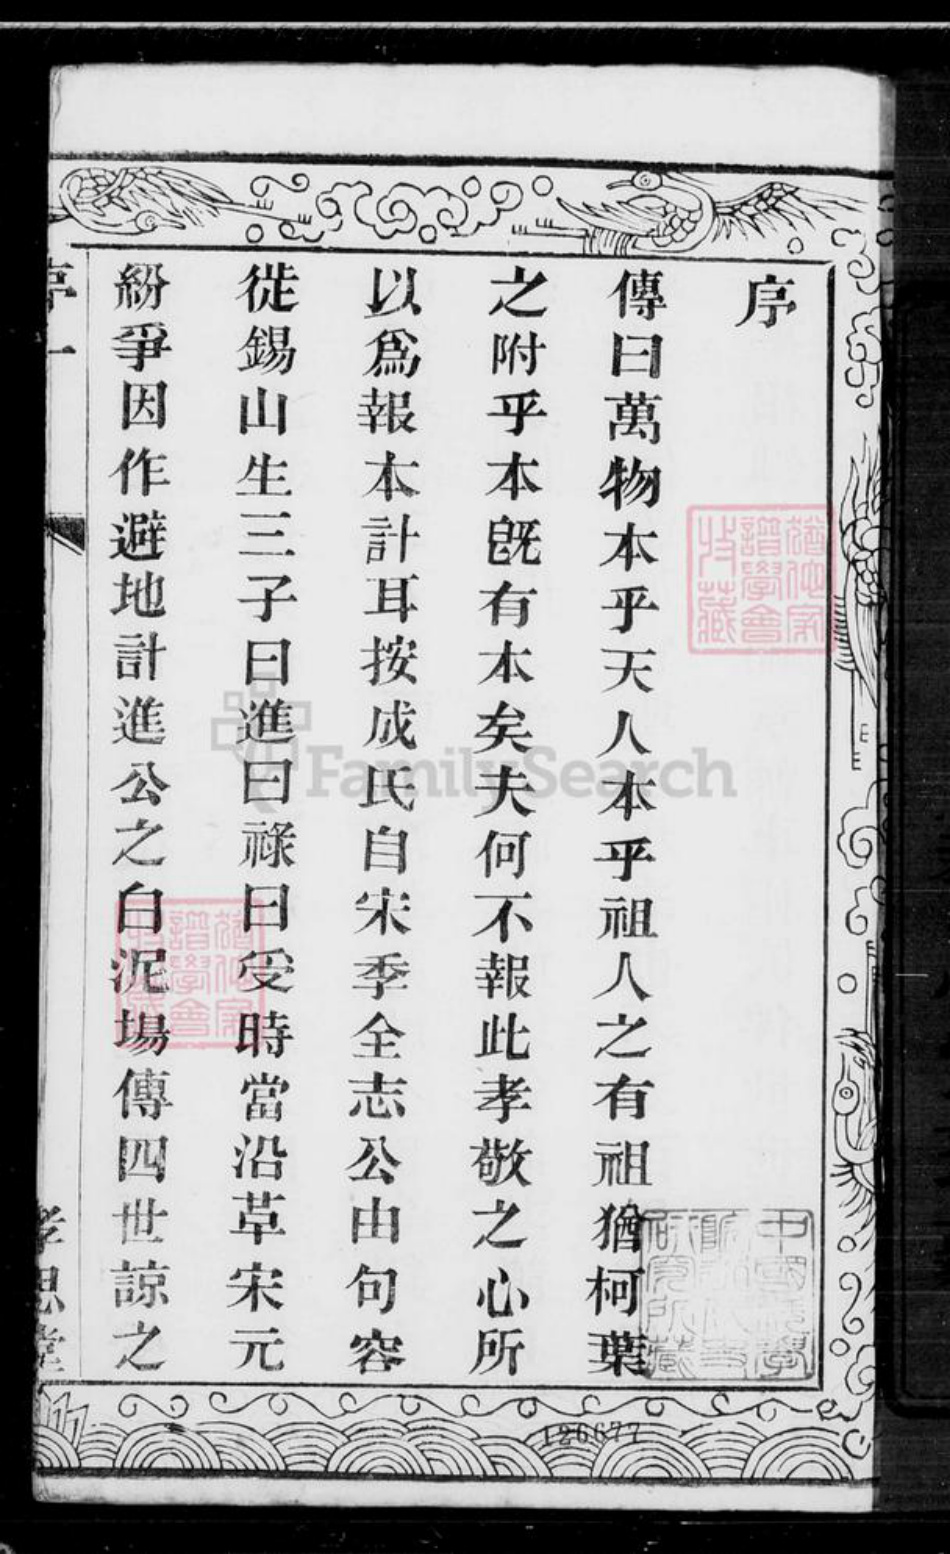 序
傳曰萬物本乎天人本乎祖人之有祖猶柯葉
之附乎本旣有本矣夫何不報此孝敬之心所
以爲報本計耳按成氏自宋季全志公由句容
徙錫山生三子曰進曰祿曰受時當沿草宋元
紛爭因作避地計進公之白泥場傳四世諒之
序
一
孝思堂
譜學會
收藏
FamilySearch
126677